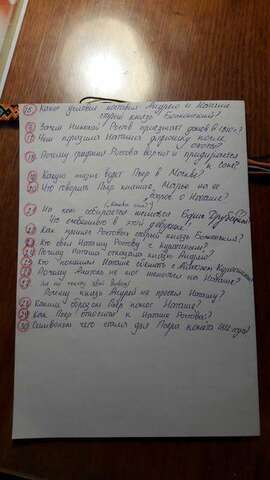 15) Какое условие поставил Андрею и Наташе
старый князь Болконский?
16) Зачем Николай Ростов приезжает домой в 1810 г?
17) Чем поразила Наташа дядюшку после
охоты?
18) Почему графиня Ростова ворчит и придирается
к Соне?
19) Какую жизнь ведёт Пьер в Москве?
20) Что говорит Пьер княжне Марье на её
вопрос о Наташе?
21) На ком собирается жениться Борис Друбецкой?
Что особенного в этой девушке?
22) Как принял Ростовых старый князь Болконский?
23) Кто свёл Наташу Ростову с Курагиным?
24) Почему Наташа отказала князю Андрею?
25) Кто помешал Наташе сбежать с Анатолем Курагиным?
26) Почему Анатоль не мог жениться на Наташе?
27) Почему князь Андрей не простил Наташу?
28) Каким образом Пьер помог Наташе?
29) Как Пьер относится к Наташе Ростовой?
30) Символом чего стала для Пьера комета 1812 года?